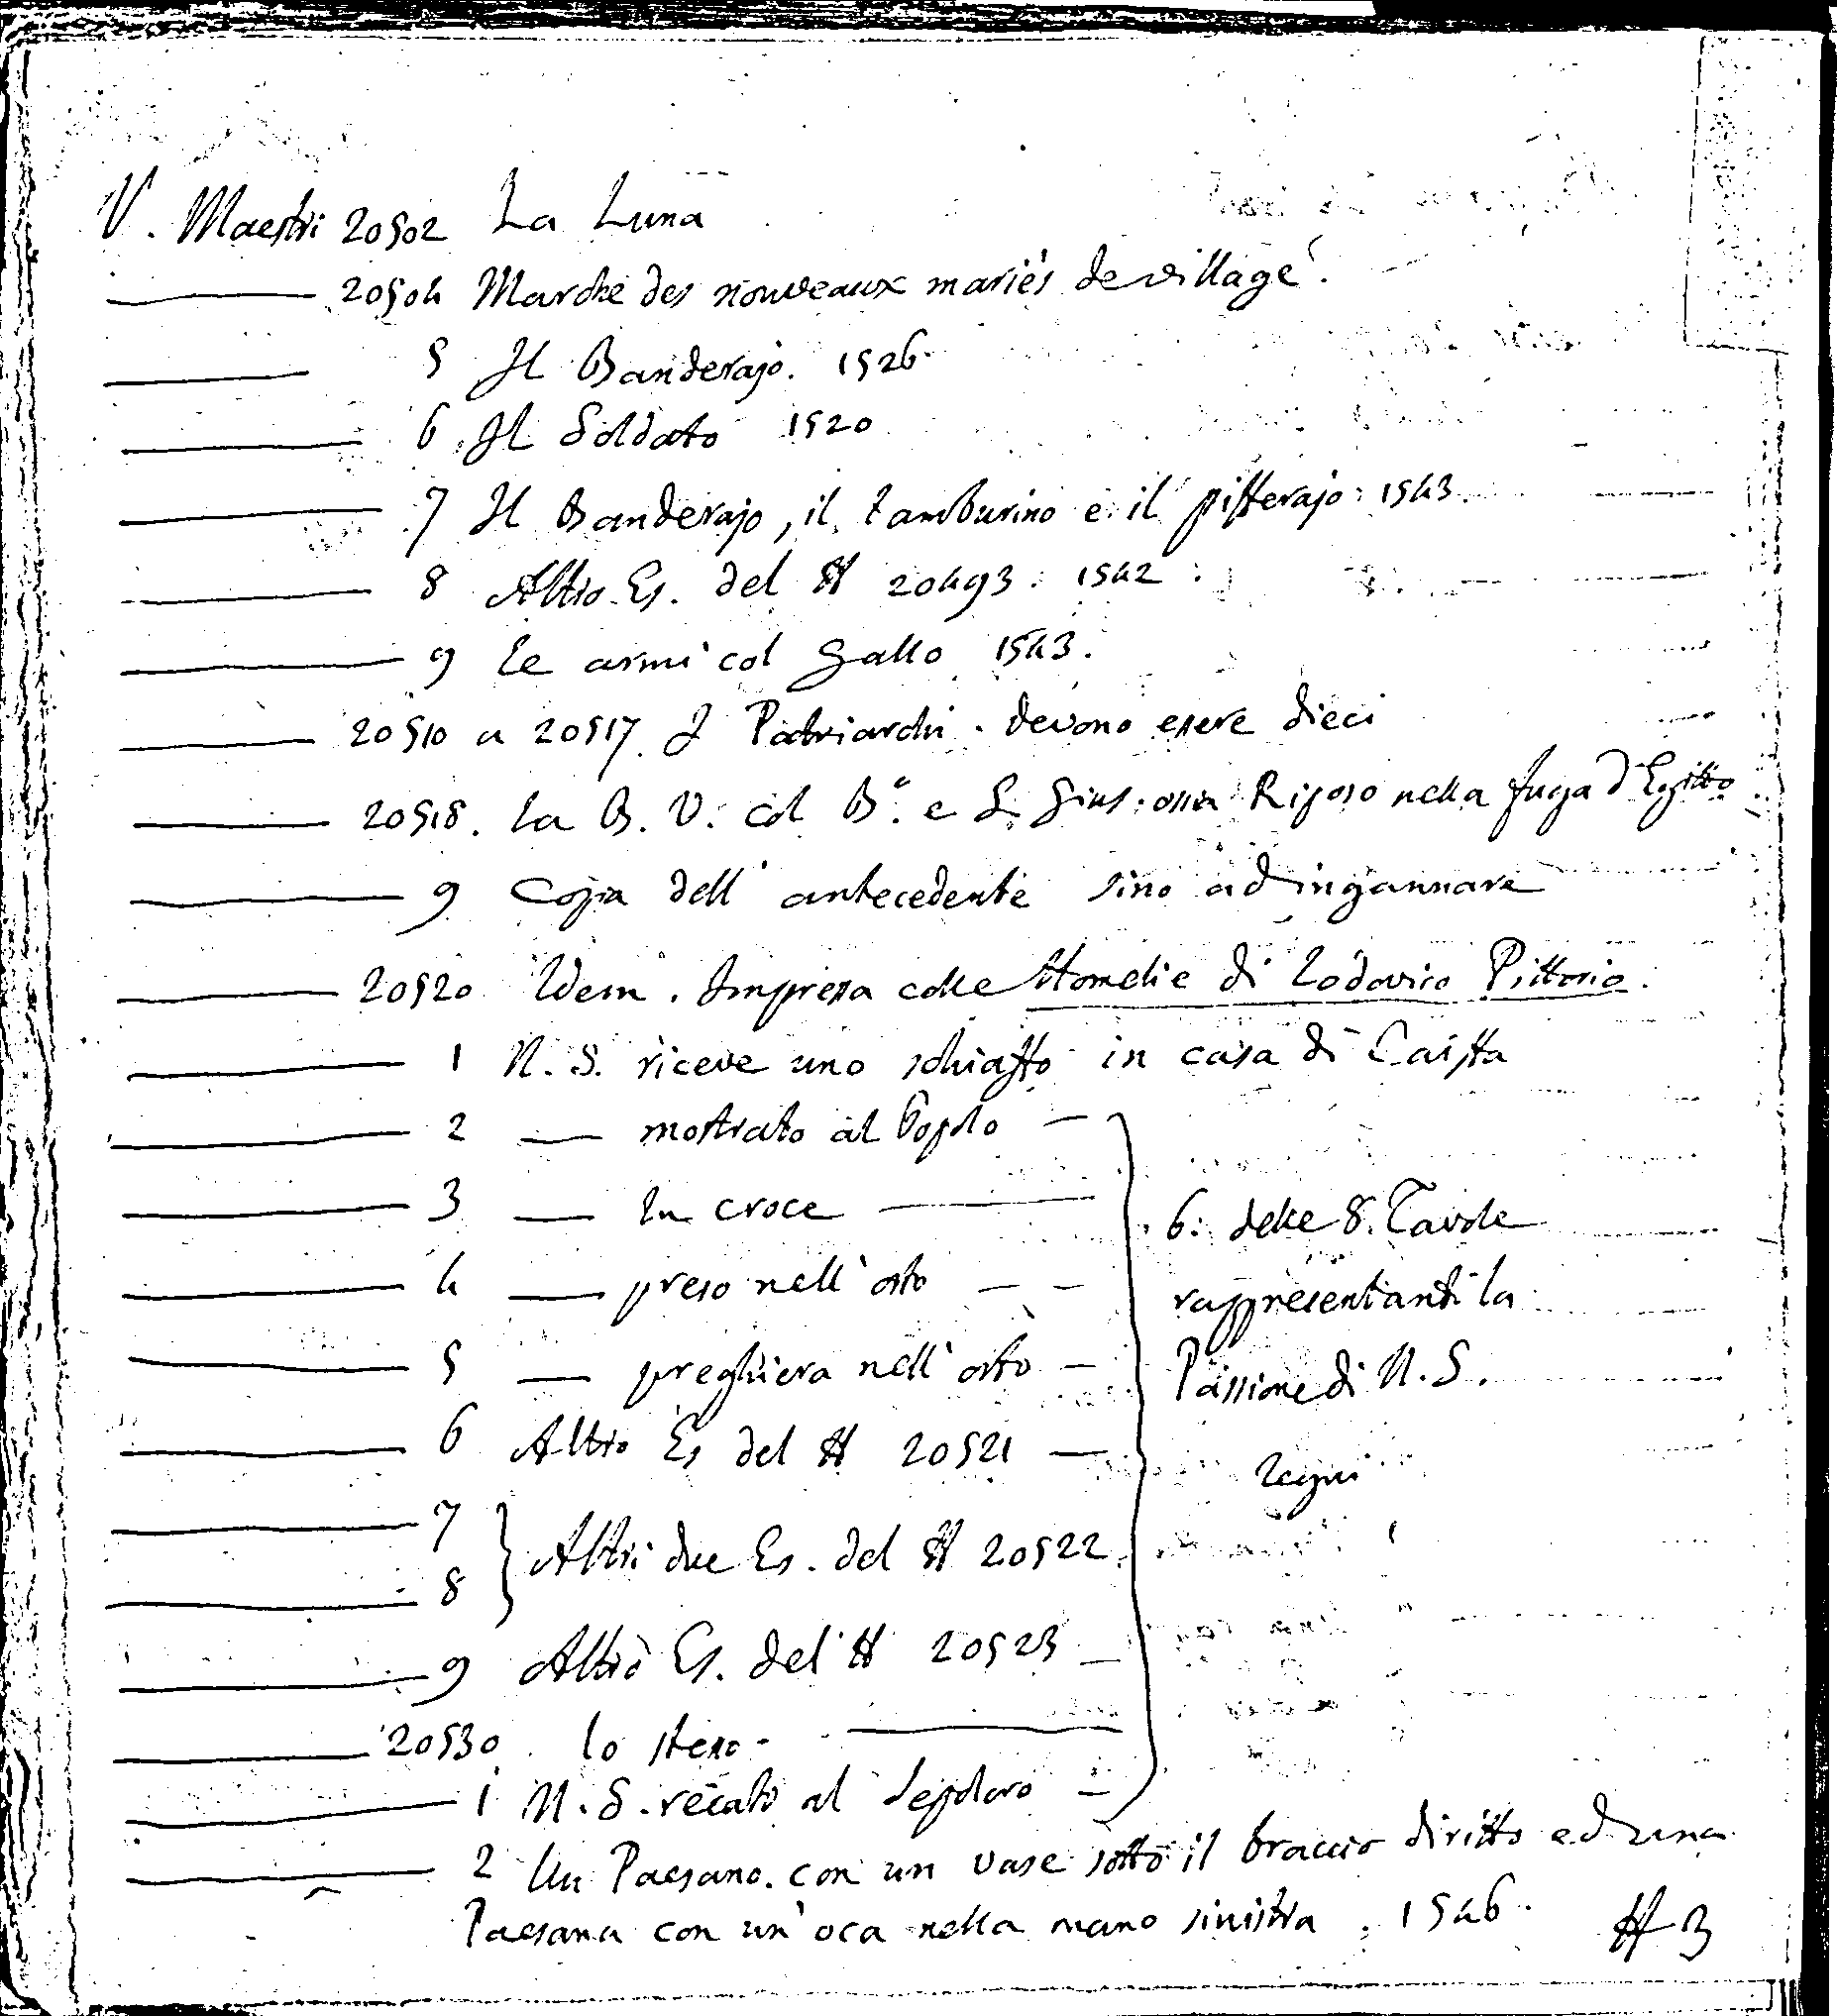 V. Maestri 20502 La Luna
20504 Marche des nouveaux mariés de village.
5 Il Banderajo. 1526.
6 Il Soldato 1520
7 Il Banderajo, il tamburino e il pifferajo. 1543.
8 Altro Es. del # 20493. 1542.
9 Le armi col gallo 1543.
20510 a 20517. I Patriarchi. devono essere dieci
20518. La B. V. col B.º e S. Gius. ossia Riposo nella fuga d'Egitto
9 Copia dell'antecedente sino ad ingannare
20520 Idem. Impressa colle Homelie di Lodovico Pittorio.
1 N. S. riceve uno schiaffo in casa di Caiffa
2 — mostrato al Popolo —
3 — In croce —
4 — preso nell'orto — —
5 — preghiera nell'orto —
6 Altro Es del # 20521 —
7
8 } Altri due Es. del # 20522
9 Altro Es. del # 20523 —
20530. lo stesso —
1 N. S. recato al Sepolcro —
6. delle 8. Tavole
rappresentanti la
Passione di N. S.
Legni
2 Un Paesano con un vase sotto il braccio diritto ed una
Paesana con un'oca nella mano sinistra. 1546.
# 3